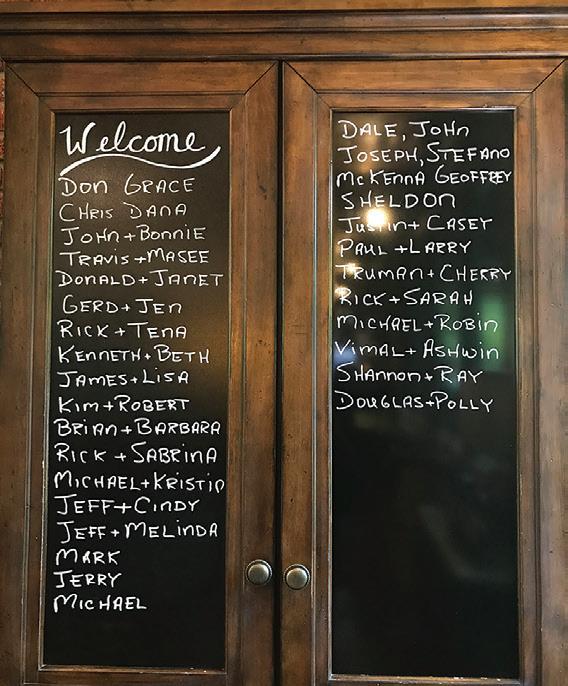 Welcome
DON GRACE
CHRIS DANA
JOHN+BONNIE
TRAVIS+MASEE
DONALD+JANET
GERD+JEN
RICK+TENA
KENNETH+BETH
JAMES+LISA
KIM+ROBERT
BRIAN+BARBARA
RICK+SABRINA
MICHAEL+KRISTIN
JEFF+CINDY
JEFF+MELINDA
MARK
JERRY
MICHAEL
DALE, JOHN
JOSEPH, STEFANO
McKENNA GEOFFREY
SHELDON
JUSTIN+CASEY
PAUL+LARRY
TRUMAN+CHERRY
RICK+SARAH
MICHAEL+ROBIN
VIMAL+ASHWIN
SHANNON+RAY
DOUGLAS+POLLY